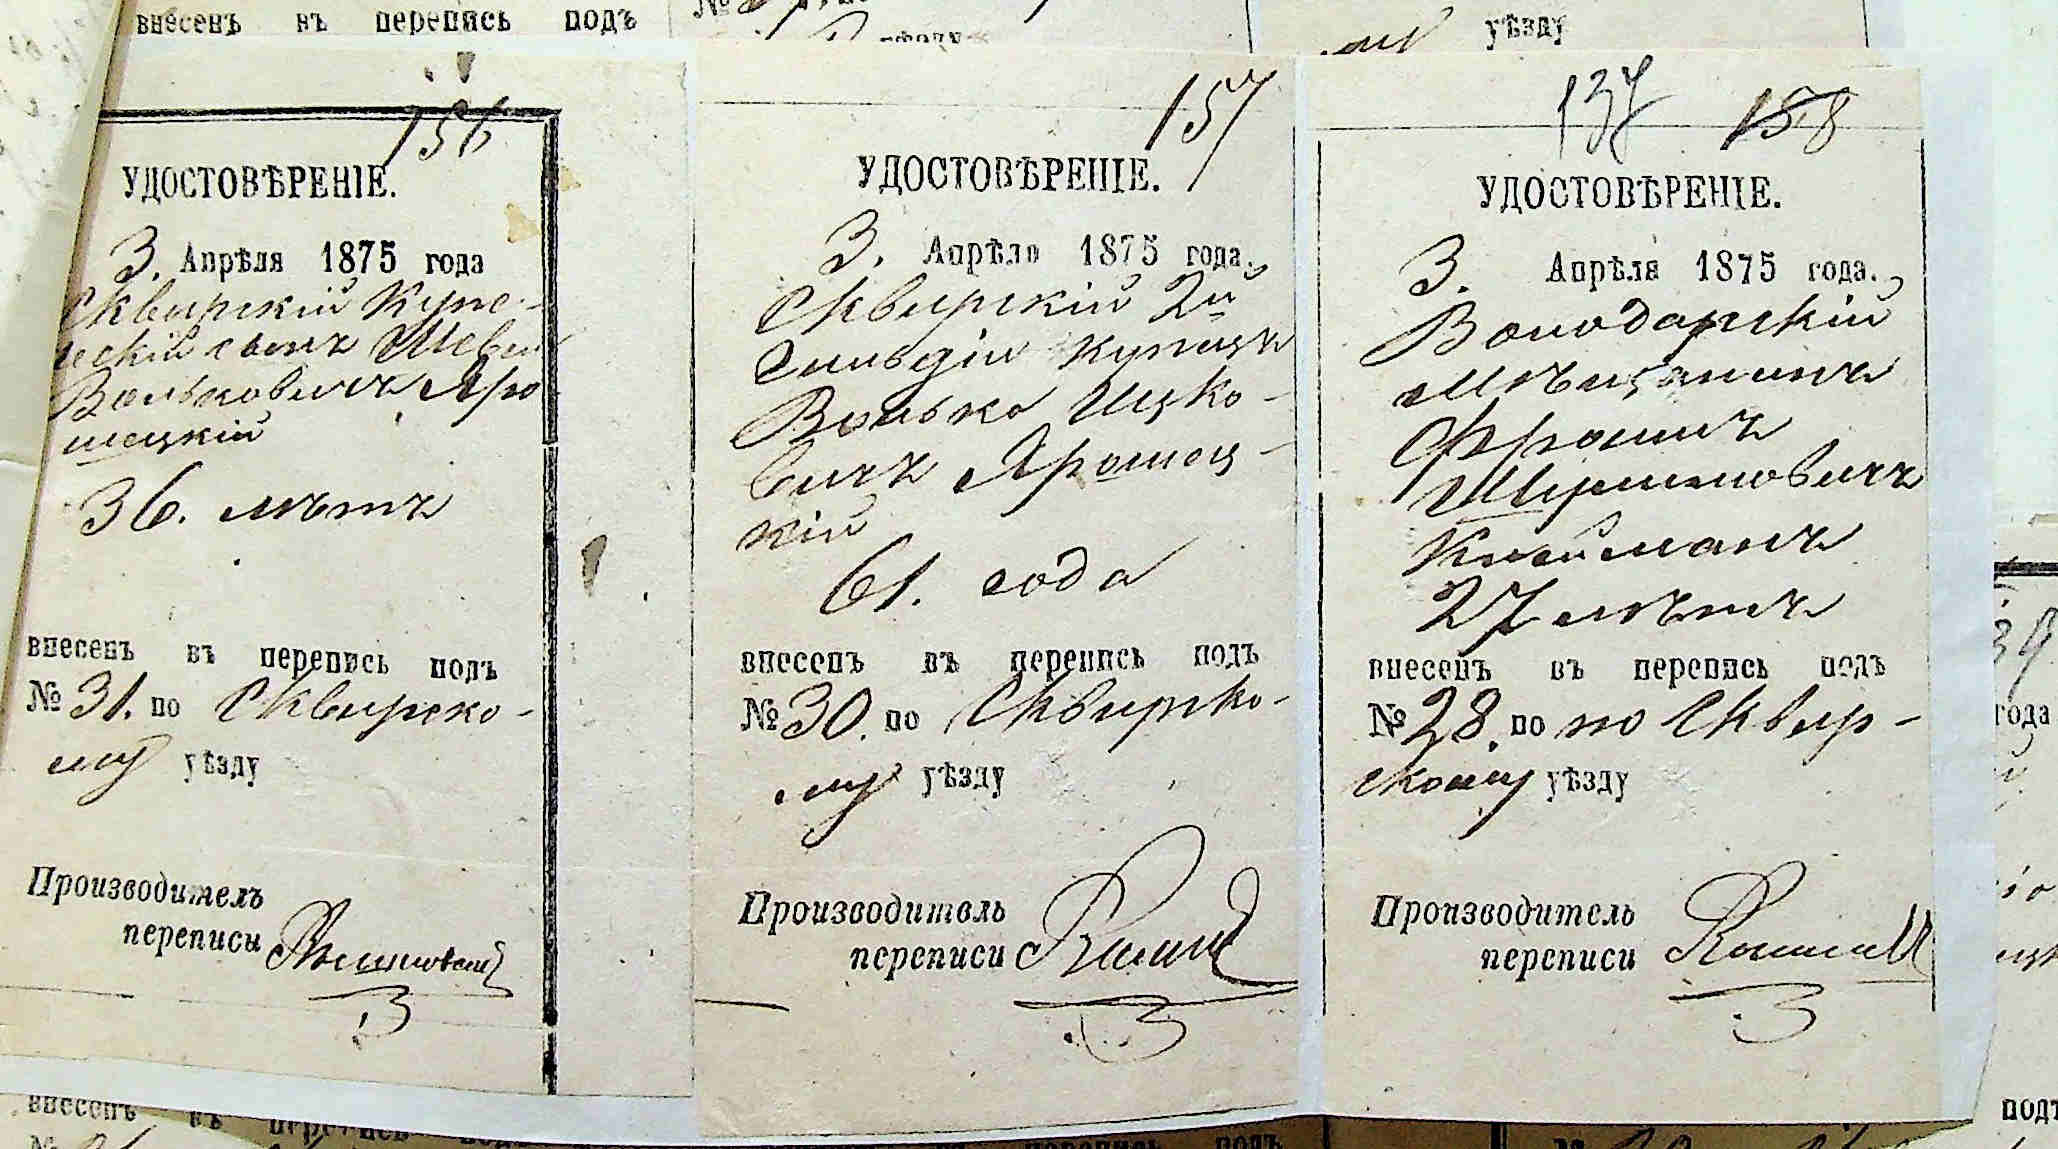 внесенъ въ перепись подъ
уѣзду
156
УДОСТОВѢРЕНІЕ.
3. Апрѣля 1875 года
Сквирскій Купе-
ческій сынъ Шевель
Вольковичъ Яро
шецкій
36. лѣтъ
внесенъ въ перепись подъ
№ 31. по Сквирско-
му уѣзду
Производитель
переписи
157
УДОСТОВѢРЕНІЕ.
3. Апрѣля 1875 года.
Сквирскій 2й
гильдіи купецъ
Волько Ицко-
вичъ Ярошец-
кій
61. года
внесенъ въ перепись подъ
№ 30. по Сквирско-
му уѣзду
Производитель
переписи
137 158
УДОСТОВѢРЕНІЕ.
3. Апрѣля 1875 года.
Володарскій
Мѣщанинъ
Фроимъ
Шулимовичъ
Клейманъ
27 лѣтъ
внесенъ въ перепись подъ
№ 28. по по Сквир-
скому уѣзду
Производитель
переписи
года
подъ
внесенъ въ перепись
перепись подъ